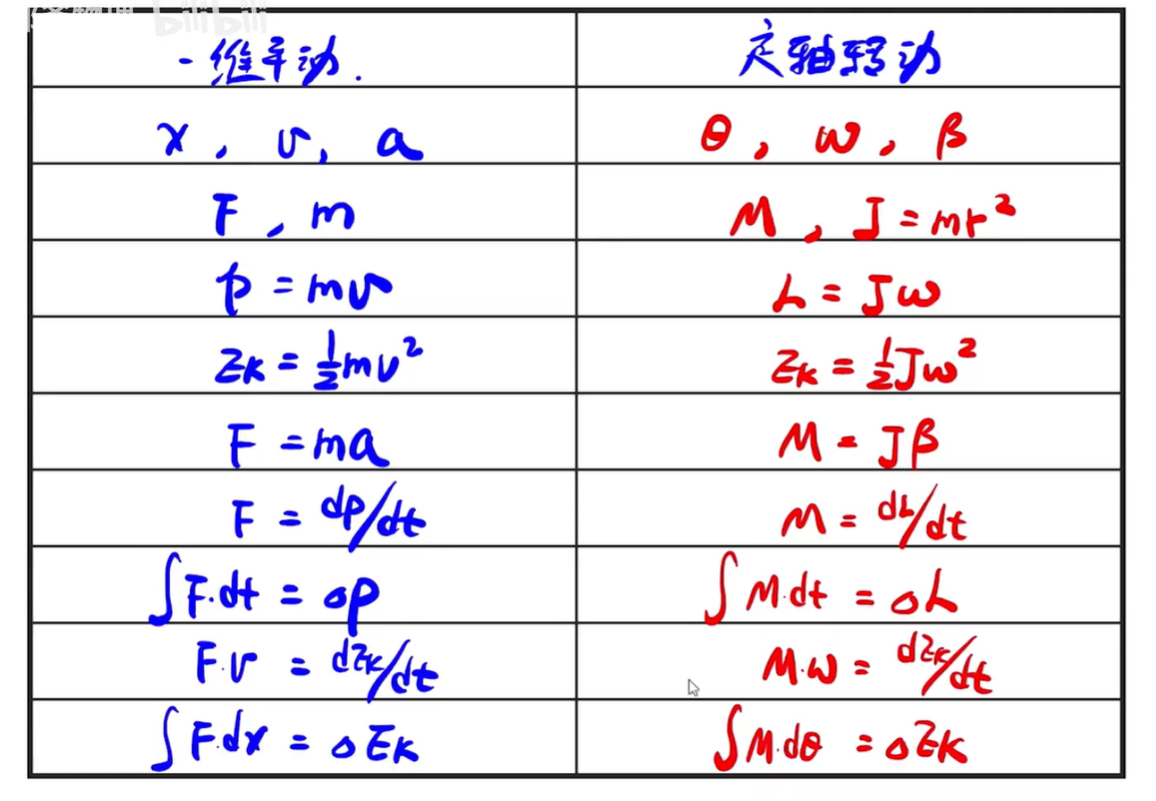 bilibili
一维平动. 定轴转动
x, v, a θ, ω, β
F, m M, J = mr²
p = mv L = Jω
Ek = 1/2 mv² Ek = 1/2 Jω²
F = ma M = Jβ
F = dp/dt M = dL/dt
∫F·dt = ΔP ∫M·dt = ΔL
F·v = dEk/dt M·ω = dEk/dt
∫F·dx = ΔEk ∫M·dθ = ΔEk